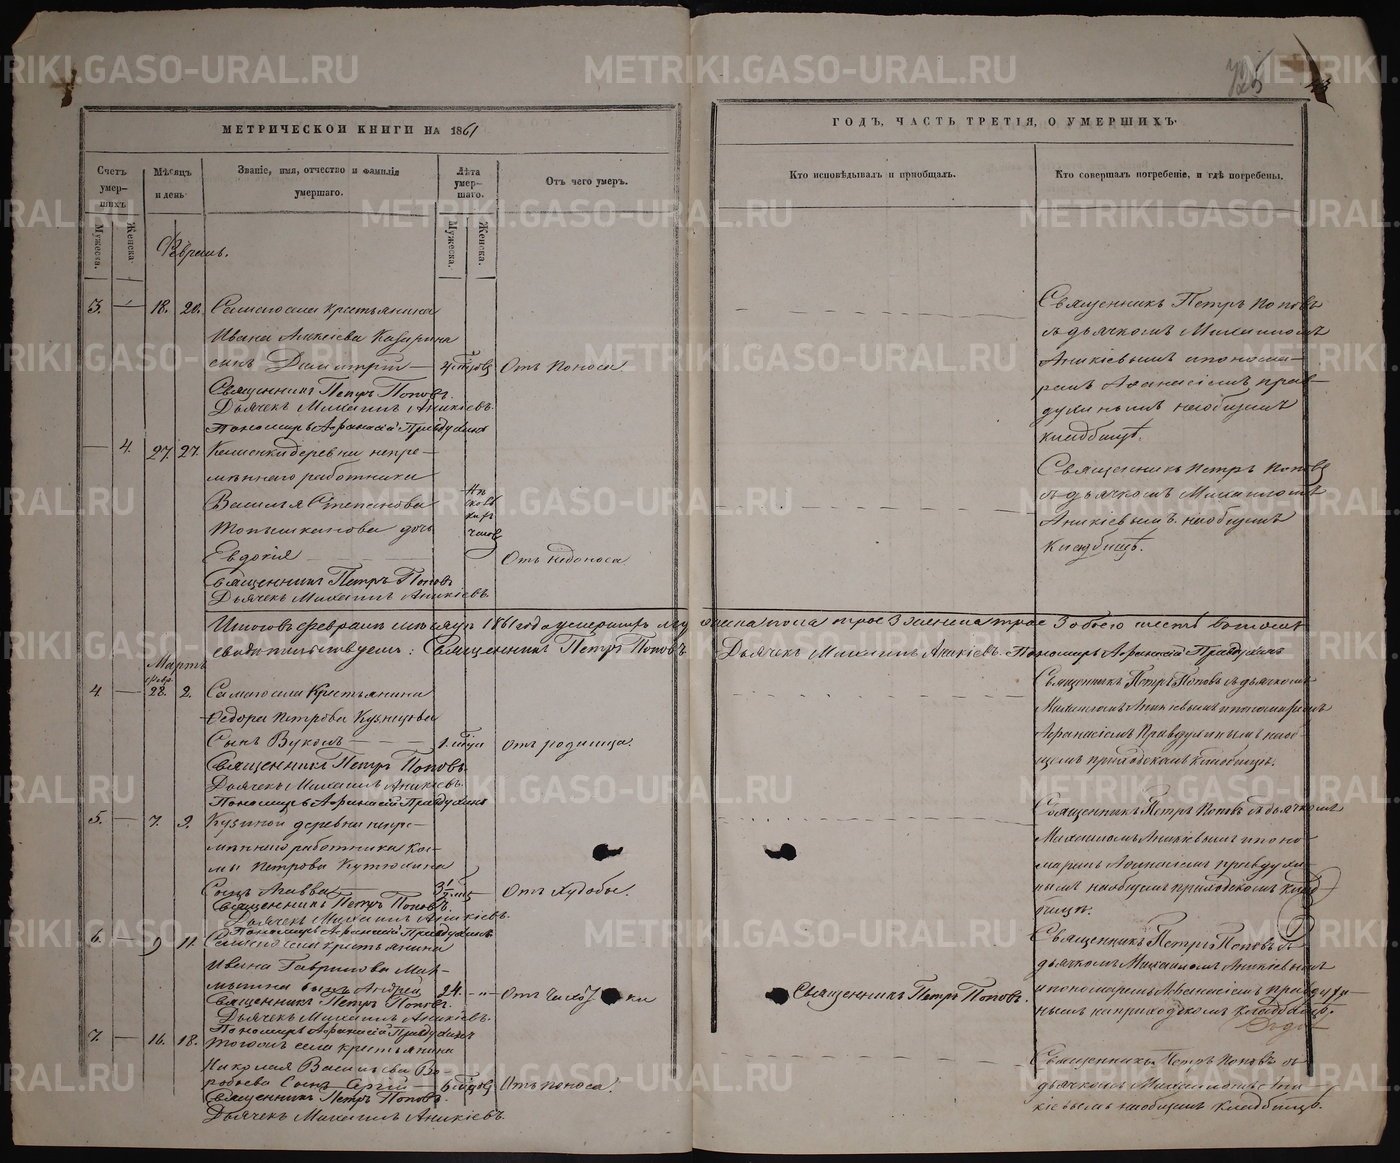 METRIKI.GASO-URAL.RU
МЕТРИЧЕСКОЙ КНИГИ НА 1861
ГОДЪ, ЧАСТЬ ТРЕТІЯ, О УМЕРШИХЪ.
Счетъ умер-шихъ.
Мужеска.
Женска.
Мѣсяцъ и день
Званіе, имя, отчество и фамилія умершаго.
Лѣта умер-шаго.
Мужеска.
Женска.
Отъ чего умеръ.
Кто исповѣдывалъ и пріобщалъ.
Кто совершалъ погребеніе, и гдѣ погребены.
Февраль.
3. 18. 20. Самаго села крестьянина
Ивана Аникіева Казарина
сынъ Димитрій
Отъ поноса
Священникъ Петръ Поповъ.
Дьячекъ Михаилъ Аникіевъ.
Пономарь Афанасій Правдухинъ
Священникъ Петръ Поповъ
съ дьячкомъ Михаиломъ
Аникіевымъ и понома-
ремъ Афанасіемъ Прав-
духинымъ на общемъ
кладбищѣ.
4. 27. 27. Каменки деревни непре-
мѣннаго работника
Василья Степанова
дочь
Евдокія
Отъ недоноса
Священникъ Петръ Поповъ
Дьячекъ Михаилъ Аникіевъ.
Священникъ Петръ Поповъ
съ дьячкомъ Михаиломъ
Аникіевымъ на общемъ
кладбищѣ.
Итого въ февралѣ мѣсяцѣ 1861 года умершихъ мужеска пола трое 3 женска трое 3 обоего шесть въ томъ
свидѣтельствуемъ: Священникъ Петръ Поповъ Дьячекъ Михаилъ Аникіевъ. Пономарь Афанасій Правдухинъ
Мартъ
4 28. 2. Самаго села крестьянина
Федора Петрова Кузнецова
Сынъ Вуколъ
1. года
Отъ родимца.
Священникъ Петръ Поповъ.
Дьячекъ Михаилъ Аникіевъ.
Пономарь Афанасій Правдухинъ
Священникъ Петръ Поповъ съ дьячкомъ
Михаиломъ Аникіевымъ и пономаремъ
Афанасіемъ Правдухинымъ на об-
щемъ приходскомъ кладбищѣ.
5. 7. 9. Кузиной деревни непре-
мѣннаго работника Коз-
мы Петрова Кутюхина
Сынъ Савва
Отъ худобы
Священникъ Петръ Поповъ.
Дьячекъ Михаилъ Аникіевъ.
Пономарь Афанасій Правдухинъ
Священникъ Петръ Поповъ съ дьячкомъ
Михаиломъ Аникіевымъ и поно-
маремъ Афанасіемъ Правдухи-
нымъ на общемъ приходскомъ клад-
бищѣ.
6. 9 11. Самаго села крестьянина
Ивана Гаврилова
сынъ Андрей
24.
Отъ чахотки
Священникъ Петръ Поповъ.
Дьячекъ Михаилъ Аникіевъ.
Пономарь Афанасій Правдухинъ
Священникъ Петръ Поповъ.
Священникъ Петръ Поповъ съ
дьячкомъ Михаиломъ Аникіевымъ
и пономаремъ Афанасіемъ Правдухи-
нымъ на приходскомъ кладбищѣ.
7. 16. 18. Тогожъ села крестьянина
Николая Васильева Во-
робьева Сынъ Сергій
Отъ поноса.
Священникъ Петръ Поповъ.
Дьячекъ Михаилъ Аникіевъ.
Священникъ Петръ Поповъ съ
дьячкомъ Михаиломъ Ани-
кіевымъ на общемъ кладбищѣ.